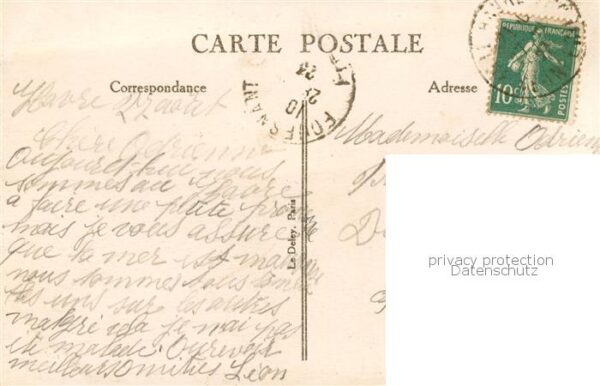 CARTE POSTALE
Correspondance
Adresse
RÉPUBLIQUE FRANÇAISE
10c
POSTES
FOUESNANT
Havre 27 août
Chère Adrienne
Aujourd'hui nous
sommes au Havre
à faire une petite
mais je vous assure
que la mer est
nous sommes tous
les uns sur les autres
malgré cela je n'ai pas
été malade. Au revoir
meilleurs amitiés Léon
Mademoiselle Adrienne
Le Deley, Paris
privacy protection
Datenschutz